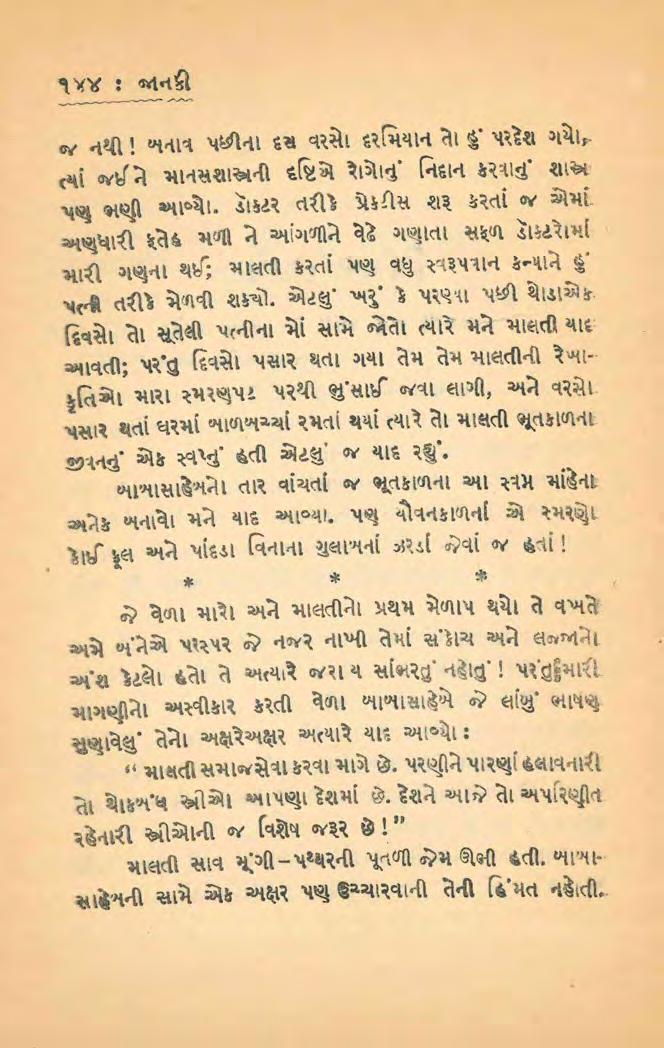 ૧૪૪ : જાનકી
જ નથી ! બનાવ પછીના દસ વરસો દરમિયાન તો હું પરદેશ ગયો,
ત્યાં જઈને માનસશાસ્ત્રની દૃષ્ટિએ રોગોનું નિદાન કરવાનું શાસ્ત્ર
પણ ભણી આવ્યો. ડૉક્ટર તરીકે પ્રેક્ટીસ શરૂ કરતાં જ એમાં
અણધારી ફતેહ મળી ને આંગળીને વેઢે ગણાતા સફળ ડૉક્ટરોમાં
મારી ગણના થઈ; માલતી કરતાં પણ વધુ સ્વરૂપવાન કન્યાને હું
પત્ની તરીકે મેળવી શક્યો. એટલું ખરું કે પરણ્યા પછી થોડાએક
દિવસો તો સૂતેલી પત્નીના મોં સામે જોતો ત્યારે મને માલતી યાદ
આવતી; પરંતુ દિવસો પસાર થતા ગયા તેમ તેમ માલતીની રેખા-
કૃતિઓ મારા સ્મરણપટ પરથી ભુંસાઈ જવા લાગી, અને વરસો
પસાર થતાં ઘરમાં બાળબચ્ચાં રમતાં થયાં ત્યારે તો માલતી ભૂતકાળના
જીવનનું એક સ્વપ્નું હતી એટલું જ યાદ રહ્યું.
બાબાસાહેબનો તાર વાંચતાં જ ભૂતકાળના આ સ્વપ્ન માંહેના
અનેક બનાવો મને યાદ આવ્યા. પણ યૌવનકાળનાં એ સ્મરણો
કોઈ ફૂલ અને પાંદડા વિનાના ગુલાબનાં ઝરડાં જેવાં જ હતાં !
* * *
જે વેળા મારો અને માલતીનો પ્રથમ મેળાપ થયો તે વખતે
અમે બંનેએ પરસ્પર જે નજર નાખી તેમાં સંકોચ અને લજ્જાનો
અંશ કેટલો હતો તે અત્યારે જરા ય સાંભરતું નહોતું ! પરંતુ મારી
માગણીનો અસ્વીકાર કરતી વેળા બાબાસાહેબે જે લાંબું ભાષણ
સુણાવેલું તેનો અક્ષરેઅક્ષર અત્યારે યાદ આવ્યો :
“ માલતી સમાજસેવા કરવા માગે છે. પરણીને પારણાં હલાવનારી
તો થોકબંધ સ્ત્રીઓ આપણા દેશમાં છે. દેશને આજે તો અપરિણીત
રહેનારી સ્ત્રીઓની જ વિશેષ જરૂર છે ! ”
માલતી સાવ મૂંગી – પથ્થરની પૂતળી જેમ ઊભી હતી. બાબા-
સાહેબની સામે એક અક્ષર પણ ઉચ્ચારવાની તેની હિંમત નહોતી.